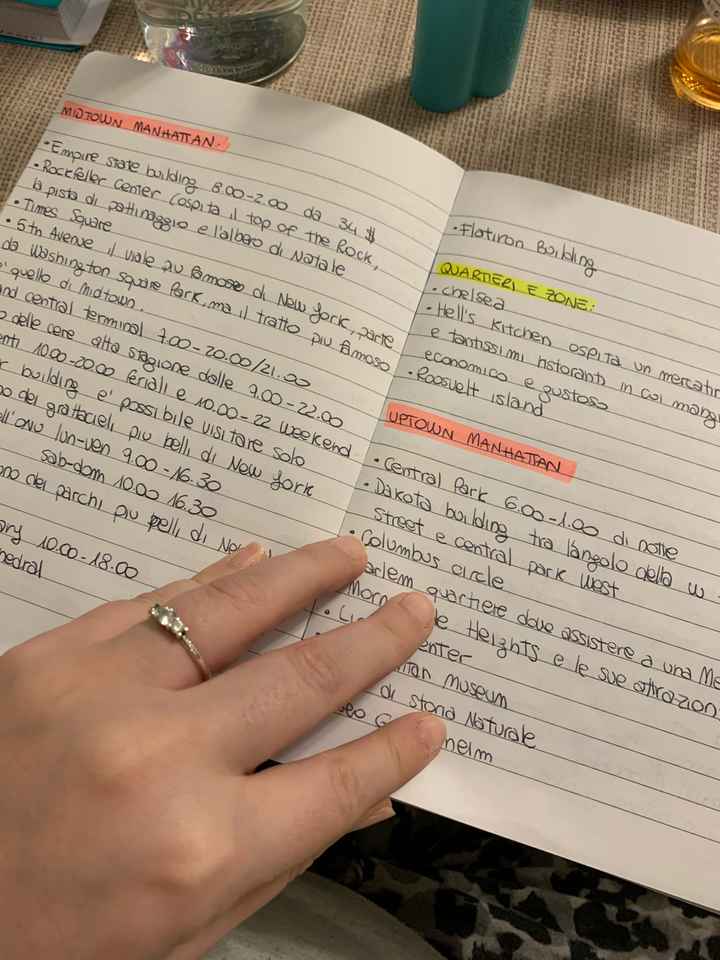 MIDTOWN MANHATTAN.
• Empire state building 8.00-2.00 da 34 $
• Rockfeller Center (ospita il top of the Rock,
la pista di pattinaggio e l'albero di Natale
• Times Square
• 5th Avenue il viale più famoso di New York, parte
da Washington Square Park, ma il tratto più famoso
e' quello di midtown.
nd central terminal 7.00-20.00/21.00
delle cere alta stagione dalle 9.00-22.00
enti 10.00-20.00 feriali e 10.00-22 weekend
building e' possibile visitare solo
no dei grattacieli più belli di New York
ell'onu lun-ven 9.00-16.30
sab-dom 10.00 16.30
no dei parchi più belli di
10.00-18.00
hedral
• Flatiron Building
QUARTIERI E ZONE:
• Chelsea
• Hell's Kitchen ospita un mercatin
e tantissimi ristoranti in cui mangi
economico e gustoso
• Roosvelt island
UPTOWN MANHATTAN
• Central Park 6.00-1.00 di notte
• Dakota building tra l'angolo della W
street e central park West
• Columbus circle
arlem quartiere dove assistere a una Me
Morn e Heights e le sue attrazion
• Li enter
itan museum
di storia Naturale
seo G nheim